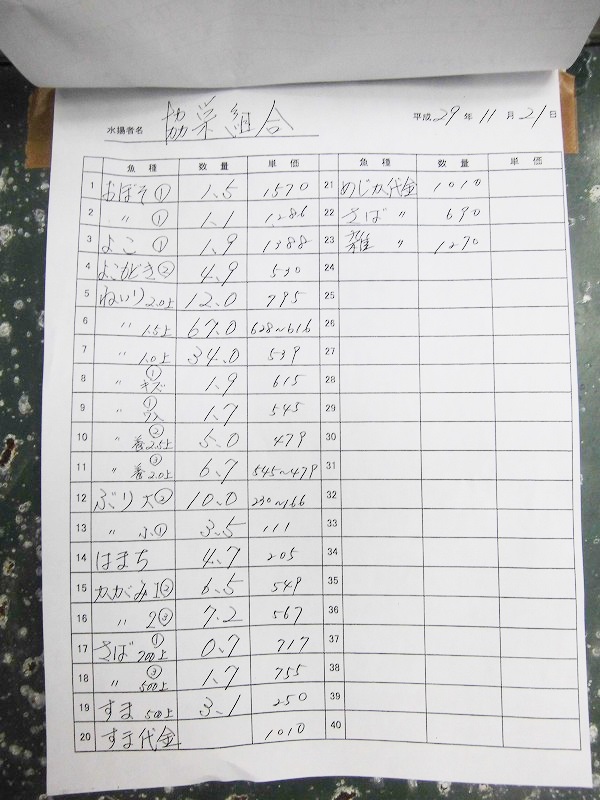 水揚者名 協栄組合 平成29年11月21日
魚種 数量 単価 魚種 数量 単価
1 おぼそ① 1.5 1570 21 めじか代金 1010
2 〃 ① 1.1 1286 22 さば 〃 690
3 よこ ① 1.9 1388 23 雑 〃 1270
4 よこもどき② 4.9 530 24
5 ねいり2.0上 12.0 795 25
6 〃 1.5上 67.0 628〜616 26
7 〃 1.0上 34.0 539 27
8 〃 ①キズ 1.9 615 28
9 〃 ① 1.7 545 29
10 〃 ②巻2.5上 5.0 479 30
11 〃 ③巻2.0上 6.7 545〜479 31
12 ぶり大② 10.0 230〜166 32
13 〃 ふ① 3.5 111 33
14 はまち 4.7 205 34
15 かがみ1② 6.5 549 35
16 〃 2③ 7.2 567 36
17 さば ①700上 0.7 717 37
18 〃 ③500上 1.7 755 38
19 すま 500上 3.1 250 39
20 すま代金 1010 40